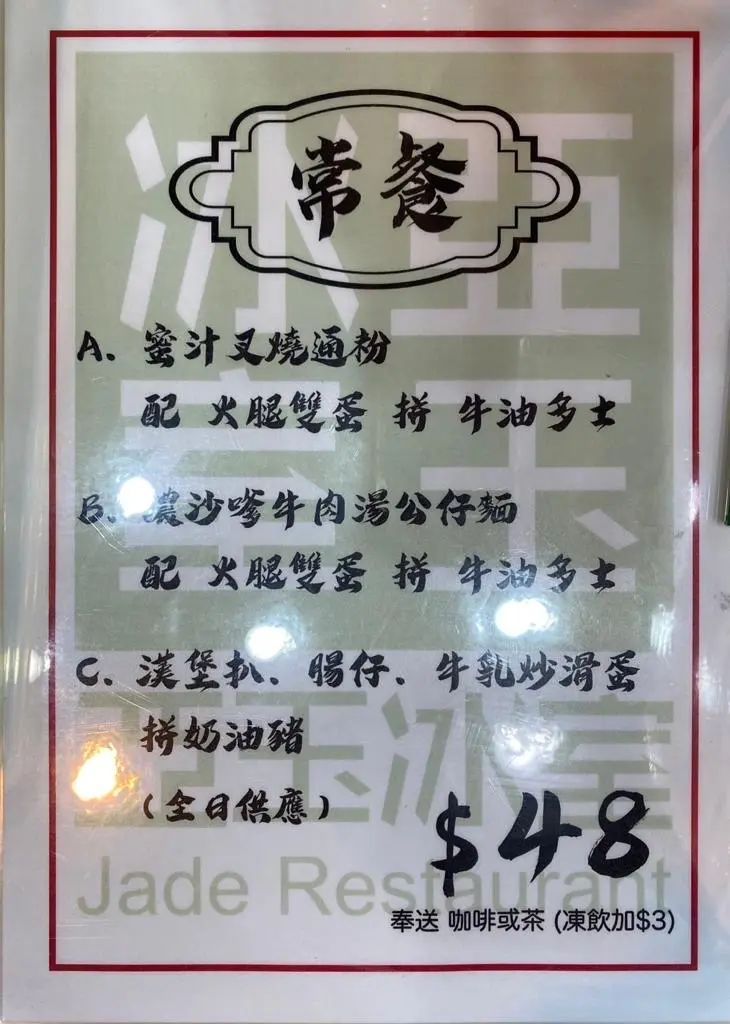 常餐
A. 蜜汁叉燒通粉
配 火腿雙蛋 拼 牛油多士
B. 濃沙嗲牛肉湯公仔麵
配 火腿雙蛋 拼 牛油多士
C. 漢堡扒、腸仔、牛乳炒滑蛋
拼奶油豬
(全日供應)
$48
奉送 咖啡或茶 (凍飲加$3)
冰亞
室玉
亞玉冰室
Jade Restaurant